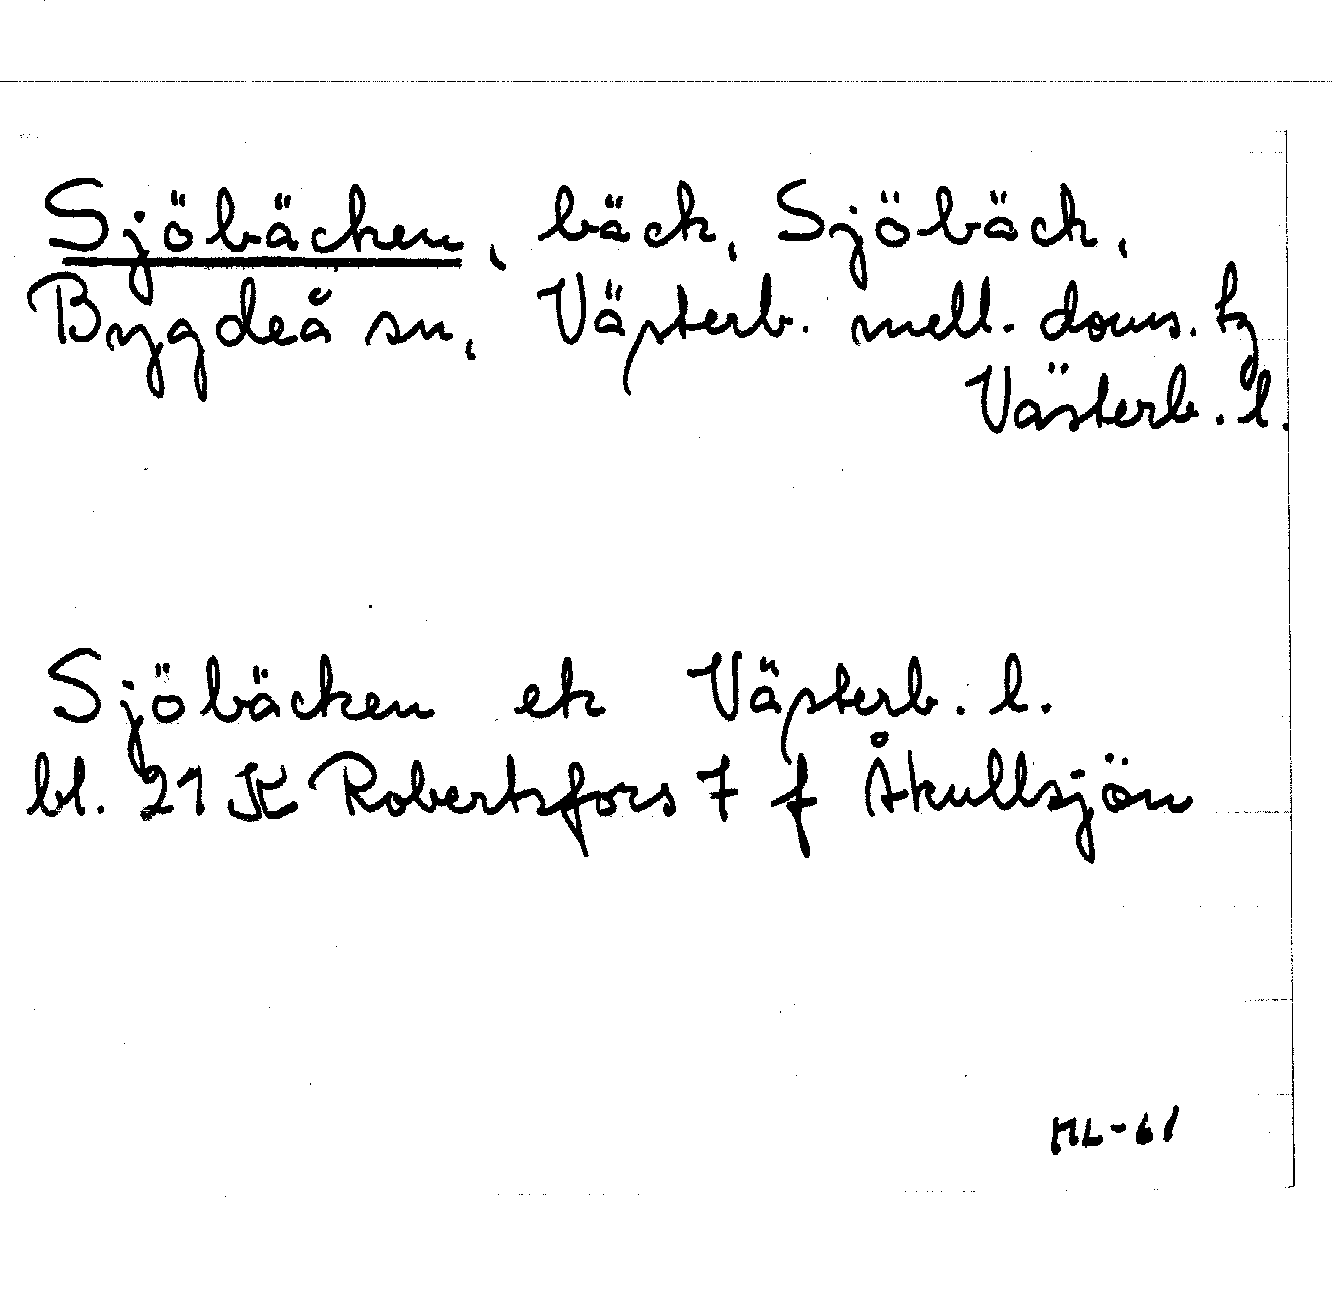 Sjöbäcken, bäck, Sjöbäck,
Bygdeå sn, Västerb. mell. doms. tg
Västerb. l.
Sjöbäcken ek Västerb. l.
bl. 21 K Robertsfors 7 f Åkullsjön
ML-61